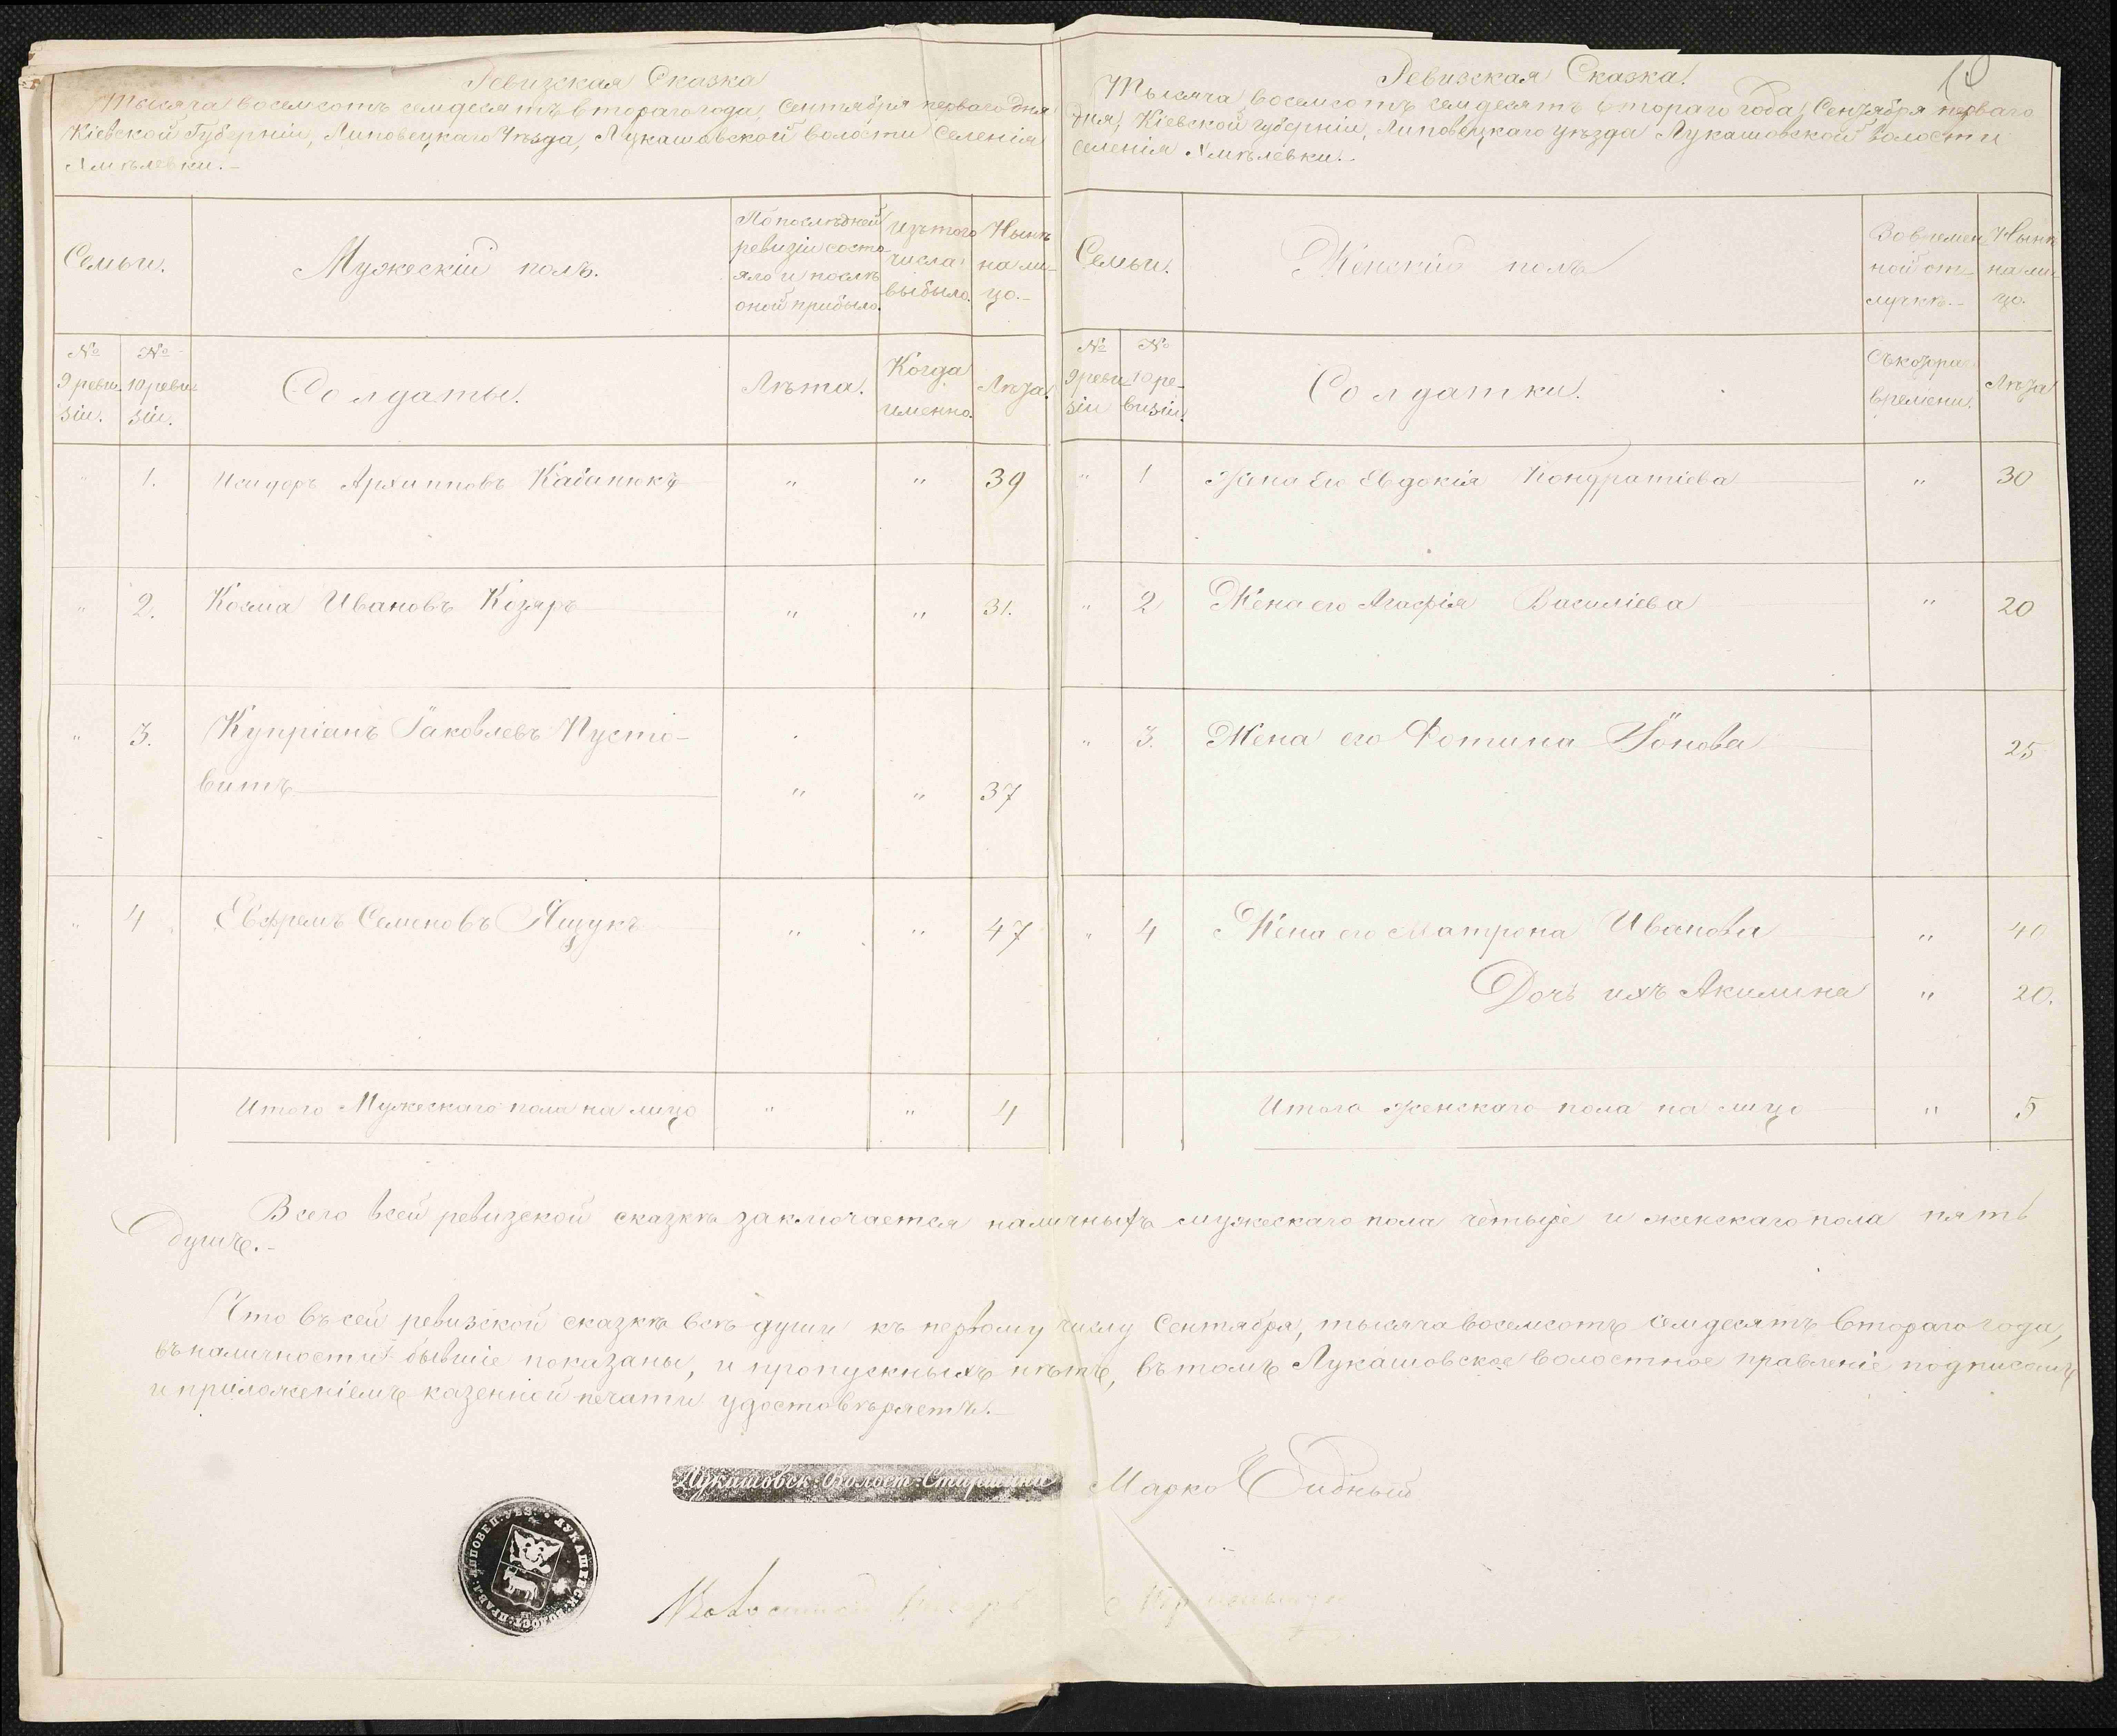 Ревизская Сказка
Тысяча восемсотъ семдесятъ втораго года, Сентября перваго дня
Кіевской Губерніи, Липовецкаго Уѣзда, Лукашовской волости Селенія
Хмѣлевки.-
Семьи.
Мужескій полъ.
По послѣдней
ревизіи состо-
яло и послѣ
оной прибыло.
Изъ того
числа
выбыло.
Нынѣ
на ли-
цо.-
№
9 реви-
зіи.
№
10 реви-
зіи.
Солдаты.
Лѣта.
Когда
именно.
Лѣта.
" 1. Исидоръ Архиповъ " " 39
" 2. Козма Ивановъ Козяръ " " 31.
" 3. Купріянъ Іаковлевъ Пусто-
витъ " " 37
" 4 Евфремъ Семеновъ Ящукъ " " 47
Итого Мужескаго пола на лицо " " 4
10
Ревизская Сказка.
Тысяча восемсотъ семдесятъ втораго года, Сентября перваго
дня, Кіевской губерніи, Липовецкаго уѣзда Лукашовской волости
селенія Хмѣлевки.-
Семьи.
Женскій полъ
Во времен-
ной от-
лучкѣ.-
Нынѣ
на ли-
цо.
№
9 реви-
зіи
№
10 ре-
визіи.
Солдатки.
Съ котораго
времени.
Лѣта
" 1 Жена его Евдокія Кондратіева " 30
" 2 Жена его Агафія Василіева " 20
" 3. Жена его Фотина Іонова 25
" 4 Жена его Матрона Иванова " 40
Дочь ихъ Акилина " 20.
Итого женскаго пола на лицо " 5
Всего в сей ревизской сказкѣ заключается наличныхъ мужескаго пола четыре и женскаго пола пять
душъ.-
Что въ сей ревизской сказкѣ всѣ души къ первому числу Сентября, тысяча восемсотъ семдесятъ втораго года,
въ наличности бывшіе показаны, и пропускныхъ нѣтъ, въ томъ Лукашовское волостное правленіе подписомъ
и приложеніемъ казенной печати удостовѣряетъ.
Лукашовск. Волост. Старшина Марко
ЛИПОВЕЦ. УѢЗ. ЛУКАШЕВСК. ВОЛОСТ. ПРАВЛ.
Волостной Писарь